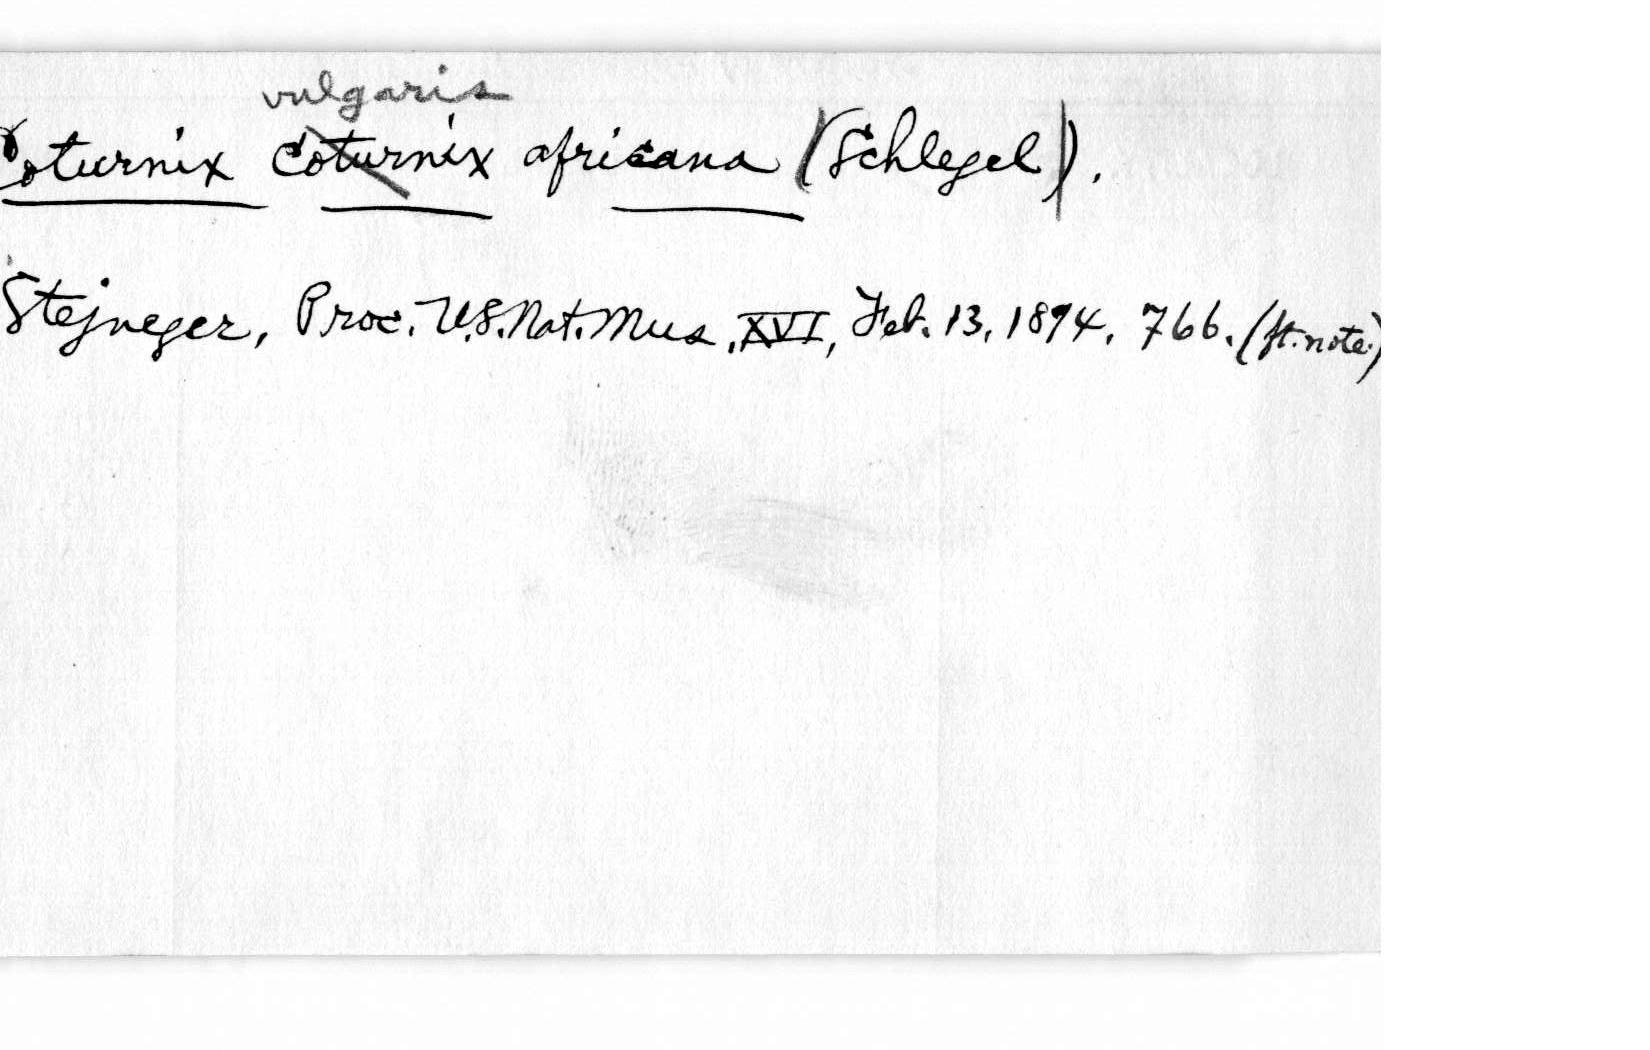 vulgaris
Coturnix Coturnix africana (Schlegel).
Stejneger, Proc. U.S. Nat. Mus., XVI, Feb. 13, 1894, 766. (ft. note.)